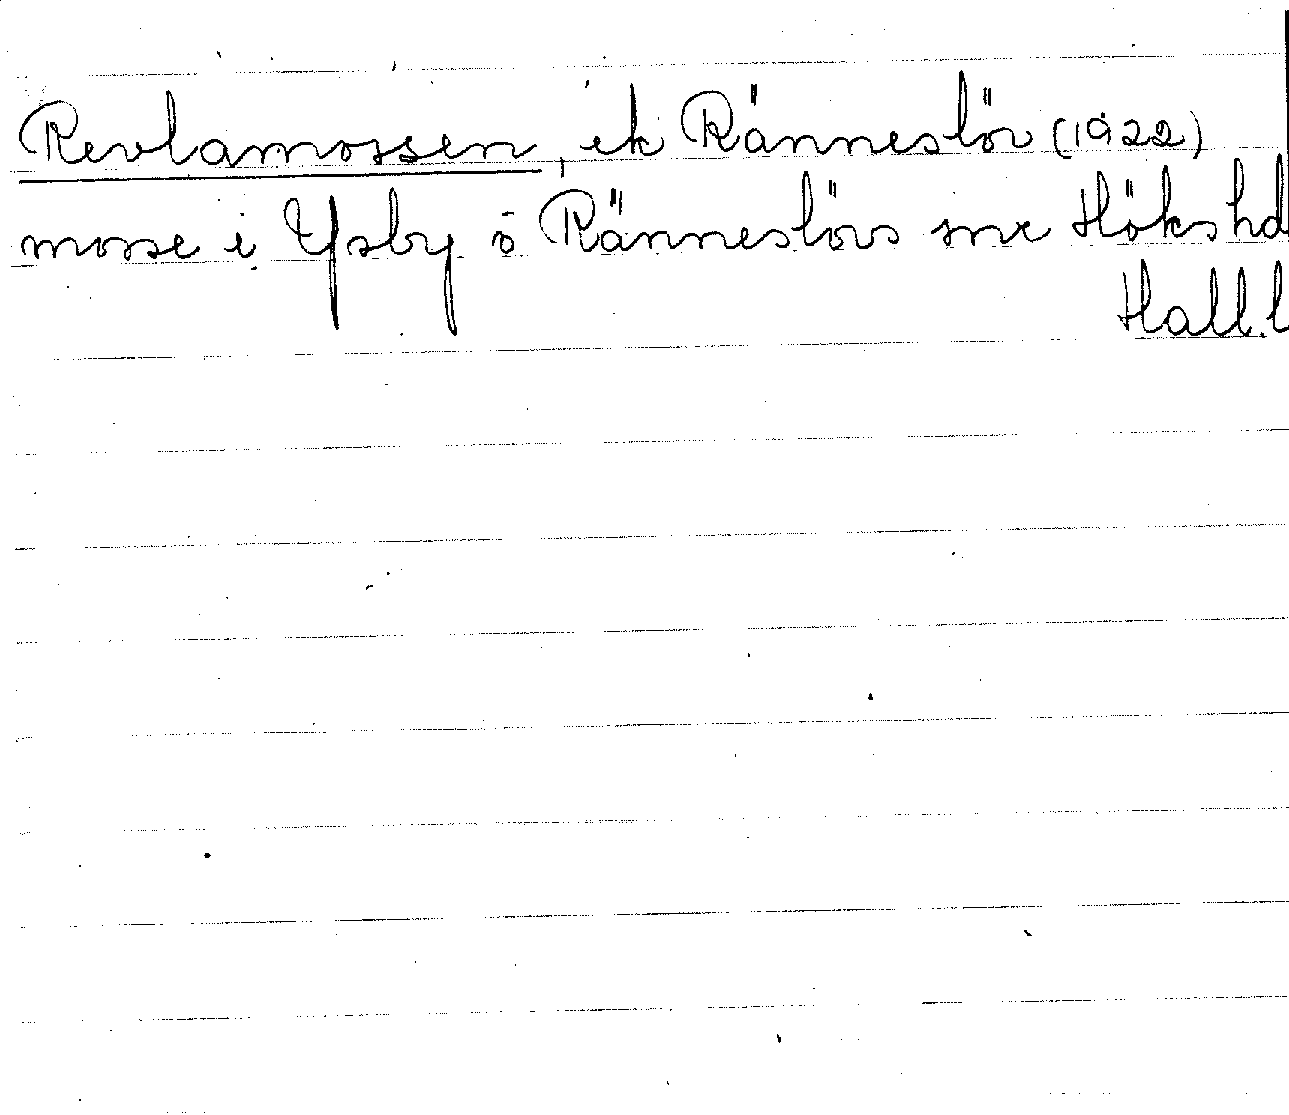 Revlamossen, ek Ränneslöv (1922)
mosse i Ysby o Ränneslövs snr Höks hd
Hall.l